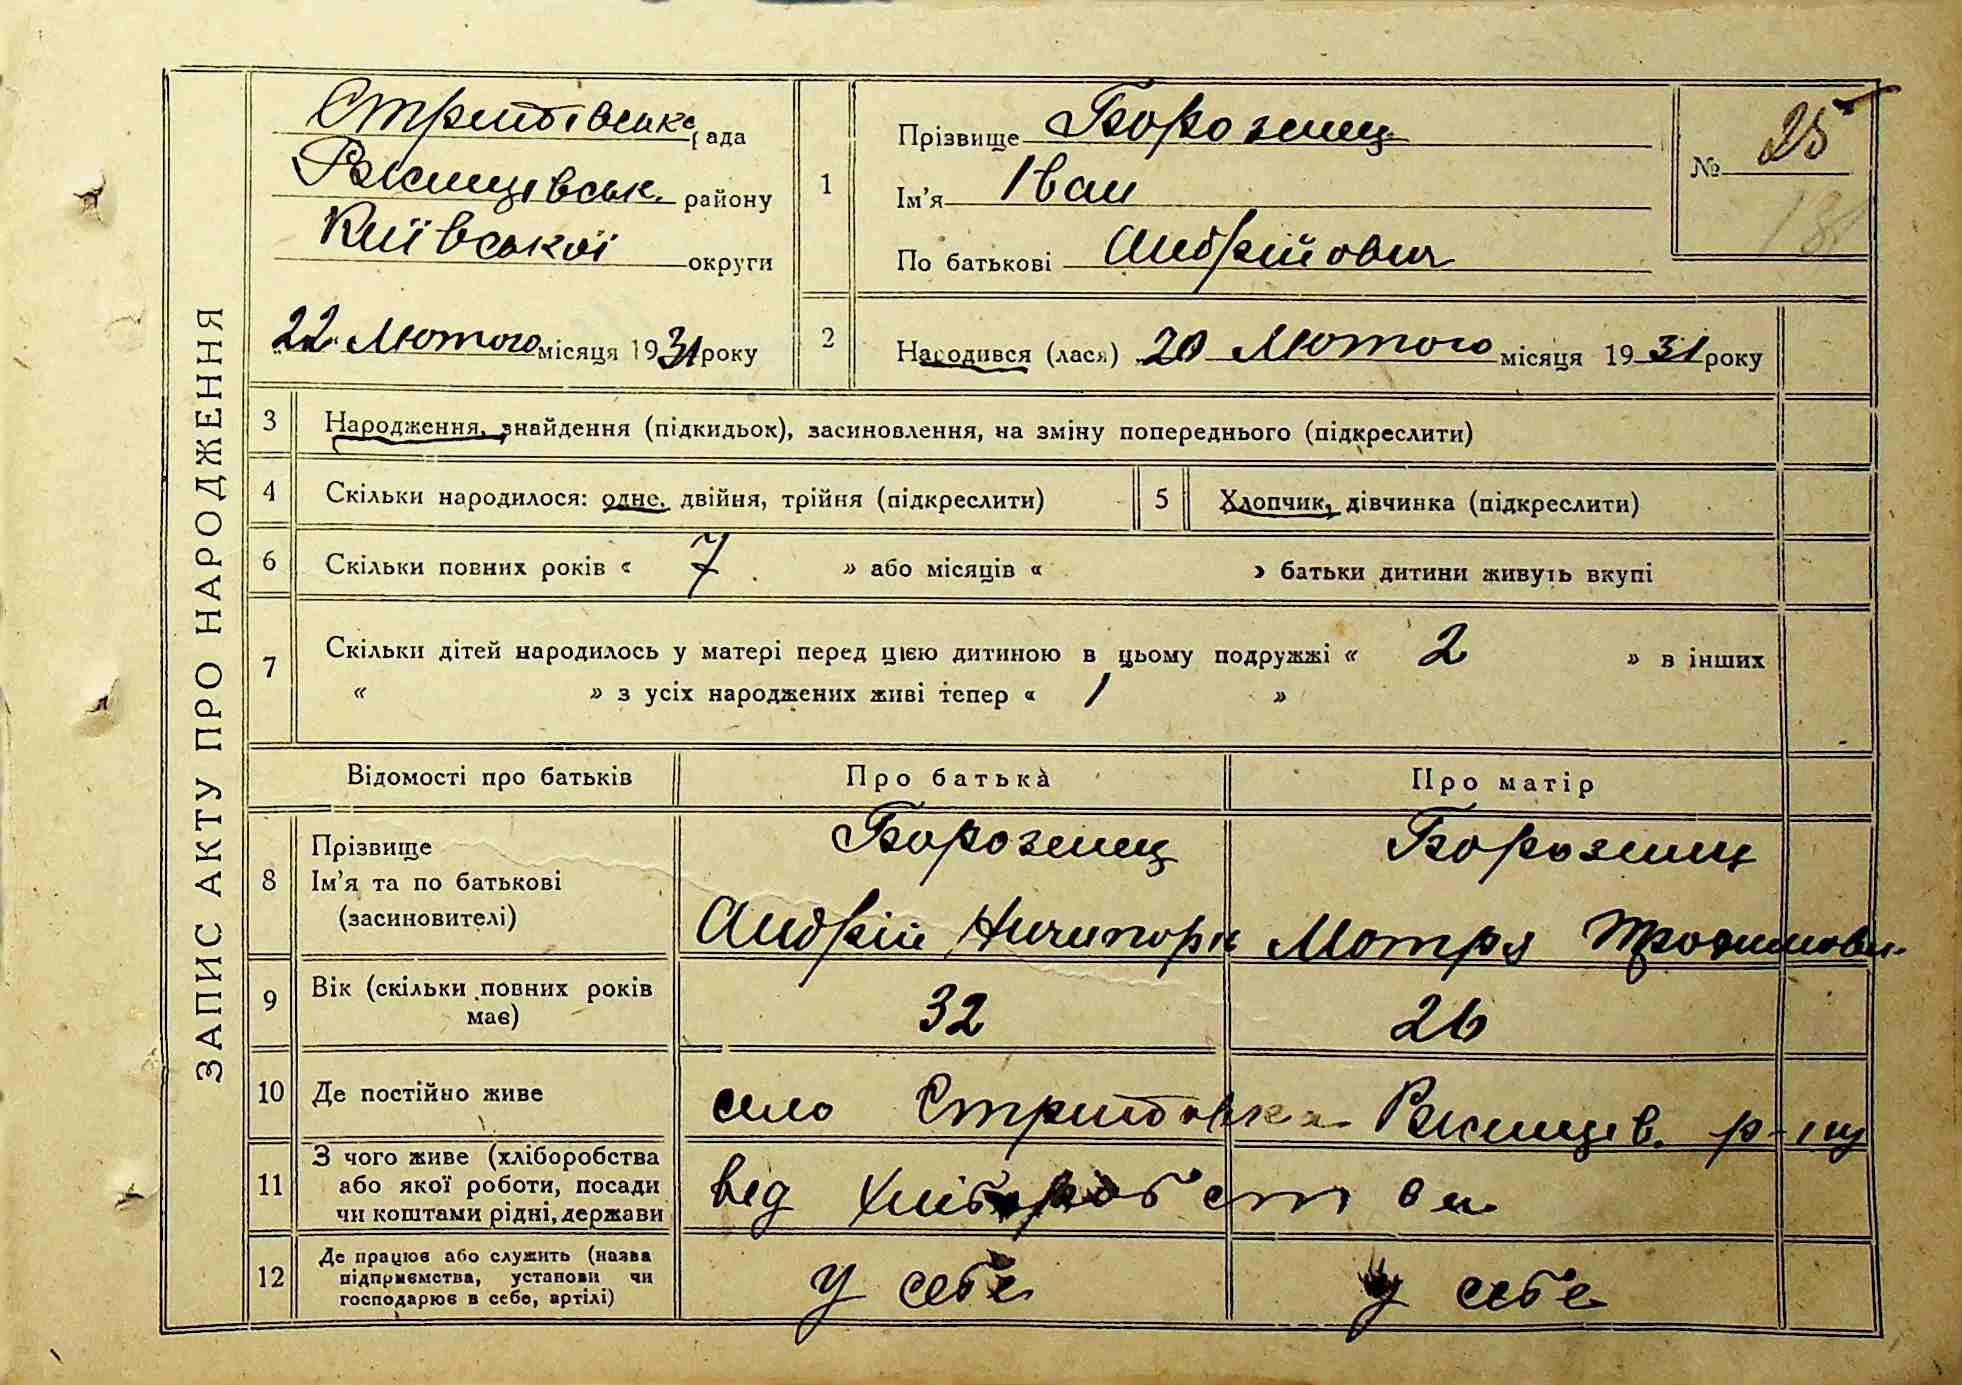 ЗАПИС АКТУ ПРО НАРОДЖЕННЯ
Стритівська рада
Ржищівськ. району
Київської округи
22 Лютого місяця 1931 року
1
Прізвище Борозенец
Ім'я Іван
По батькові Андрійович
№ 25
2
Народився (лася) 20 Лютого місяця 1931 року
3 Народження, знайдення (підкидьок), засиновлення, на зміну попереднього (підкреслити)
4 Скільки народилося: одне, двійня, трійня (підкреслити) 5 Хлопчик, дівчинка (підкреслити)
6 Скільки повних років « 7 » або місяців « » батьки дитини живуть вкупі
7 Скільки дітей народилось у матері перед цією дитиною в цьому подружжі « 2 » в інших
« » з усіх народжених живі тепер « 1 »
Відомості про батьків Про батька Про матір
8 Прізвище Борозенец Борозенец
Ім'я та по батькові
(засиновителі) Андрій Ничипорів Мотря
9 Вік (скільки повних років
має) 32 26
10 Де постійно живе село Стритовка Ржищев. р-ну
11 З чого живе (хліборобства
або якої роботи, посади
чи коштами рідні, держави від хліборобства
12 Де працює або служить (назва
підприємства, установи чи
господарює в себе, артілі) у себе у себе